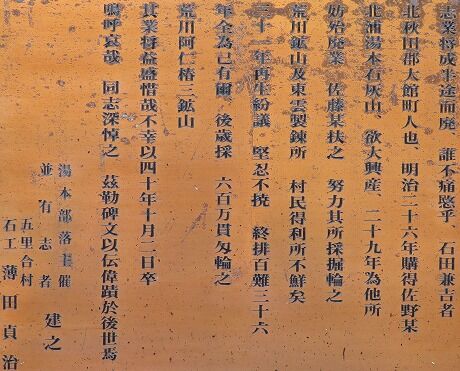 志業将成半途而廃、誰不痛愍乎、石田兼吉者
北秋田郡大館町人也、明治二十六年購得佐野某
北浦湯本石灰山、欲大興産、二十九年為他所
妨殆廃業 佐藤某扶之 努力其所採掘輸之
荒川鉱山及東雲製錬所 村民得利所不鮮矣
三十一年再生紛議 堅忍不撓 終排百難三十六
年全為己有爾、後歳採 六百万貫匁輸之
荒川阿仁椿三鉱山
其業将益盛惜哉不幸以四十年十月二日卒
嗚呼哀哉 同志深悼之 茲勒碑文以伝偉蹟於後世焉
湯本部落主催
並有志者 建之
五里合村
石工 薄田貞治